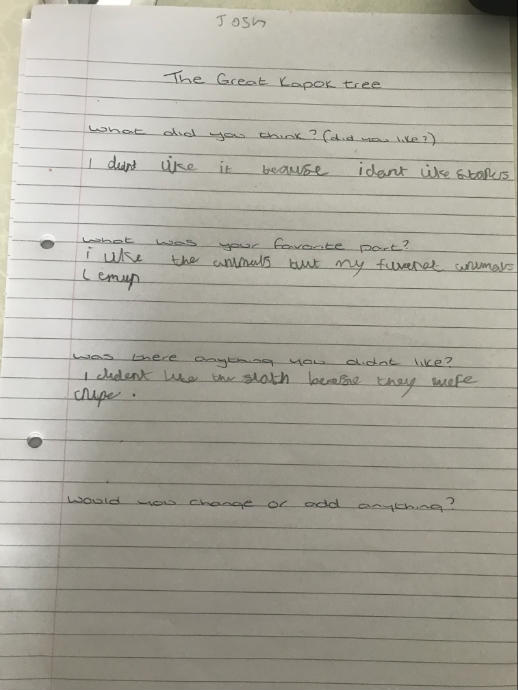 Josh
The Great Kapok tree
what did you think? (did you like?)
I dont like it beause idant like storys
what was your favorite part?
i like the animals but my favret animals
Lemup
was there anything you didnt like?
I dident like the sloth becaise they were
cripe.
would you change or add anything?